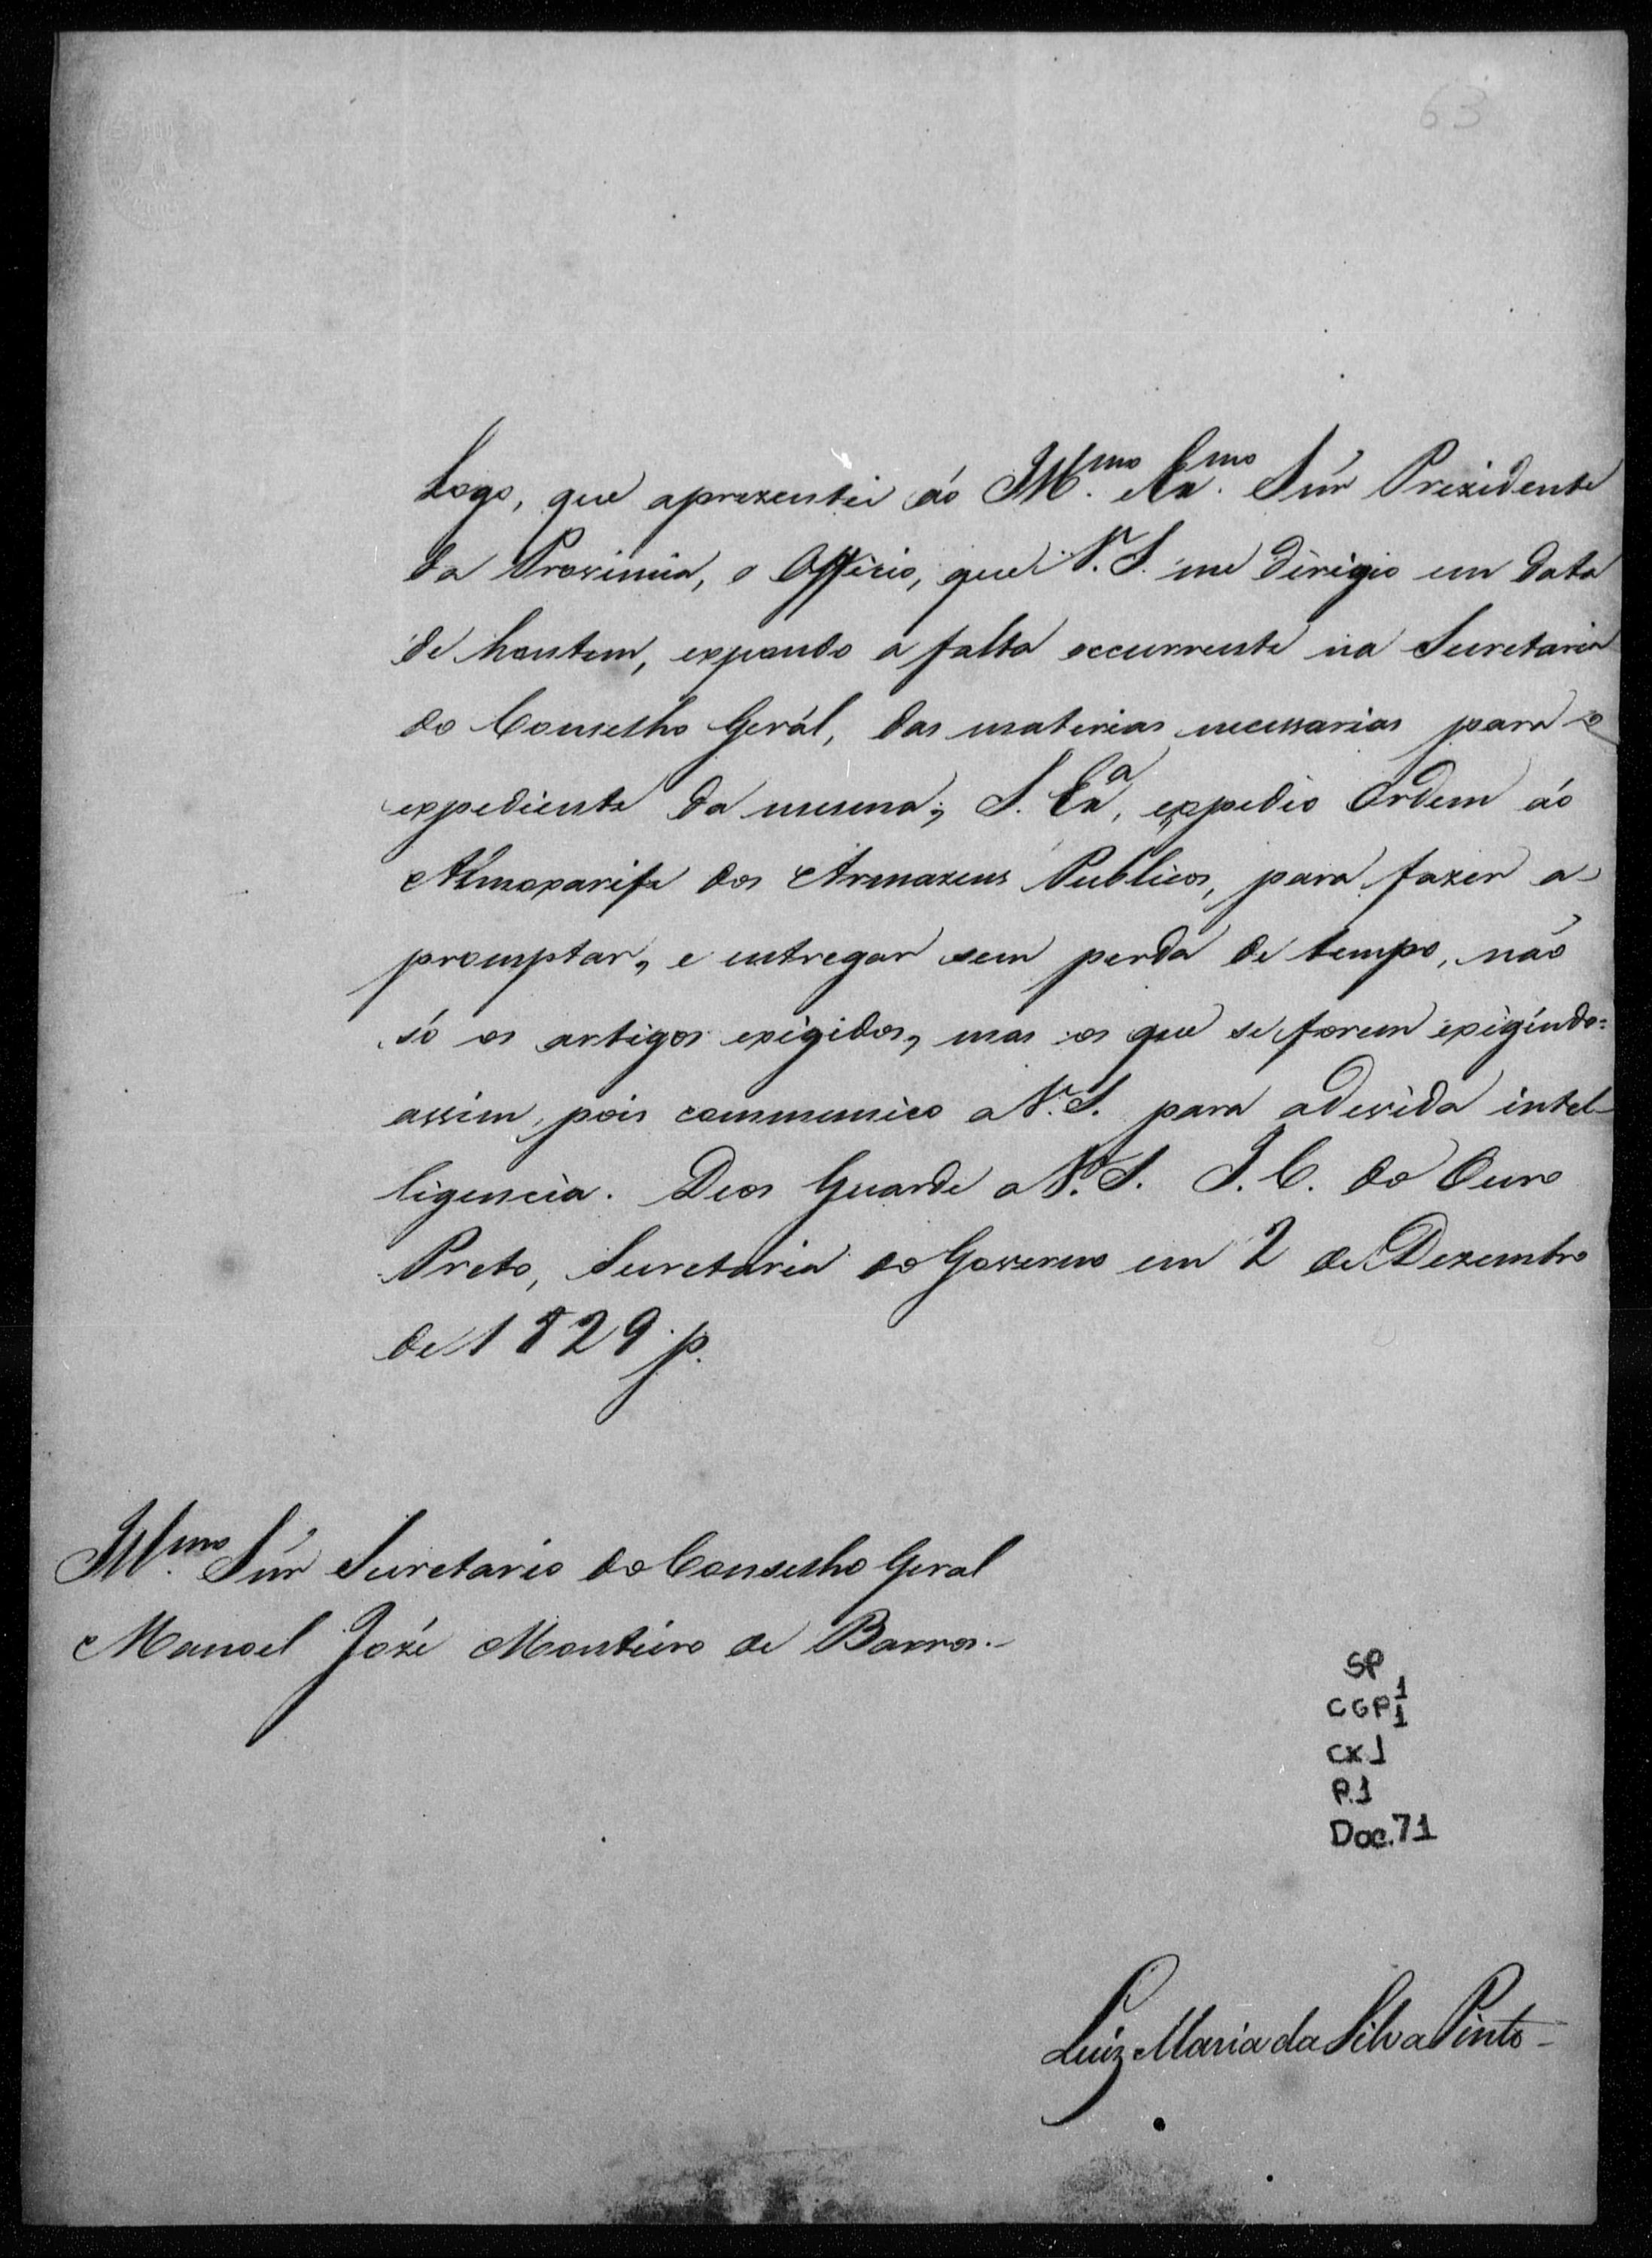 63
Logo, que aprezentei áo Ill.mo Ex.mo Snr̃ Prezidente
da Provincia, o Officio, que V.S. me dirigio em data
de hontem, expondo a falta occurrente na Secretaria
do Conselho Gerál, das materias necessarias para o
expediente da mesma; S. Exa, expedio Ordem áo
Almoxarife dos Armazens Publicos, para fazer a-
promptar, e entregar sem perda de tempo, não
só os artigos exigidos, mas os que se forem exigindo:
assim, pois communico a V.S. para a devida intel-
ligencia. Deos Guarde a V.S. I.C. do Ouro
Preto, Secretaria do Governo em 2 de Dezembro
de 1829. p.
Ill.mo Snr̃ Secretario do Conselho Geral
Manoel José Monteiro de Barros.-
SP
CGP 1/1
CX 1
P.1
Doc. 71
Luiz Maria da Silva Pinto-